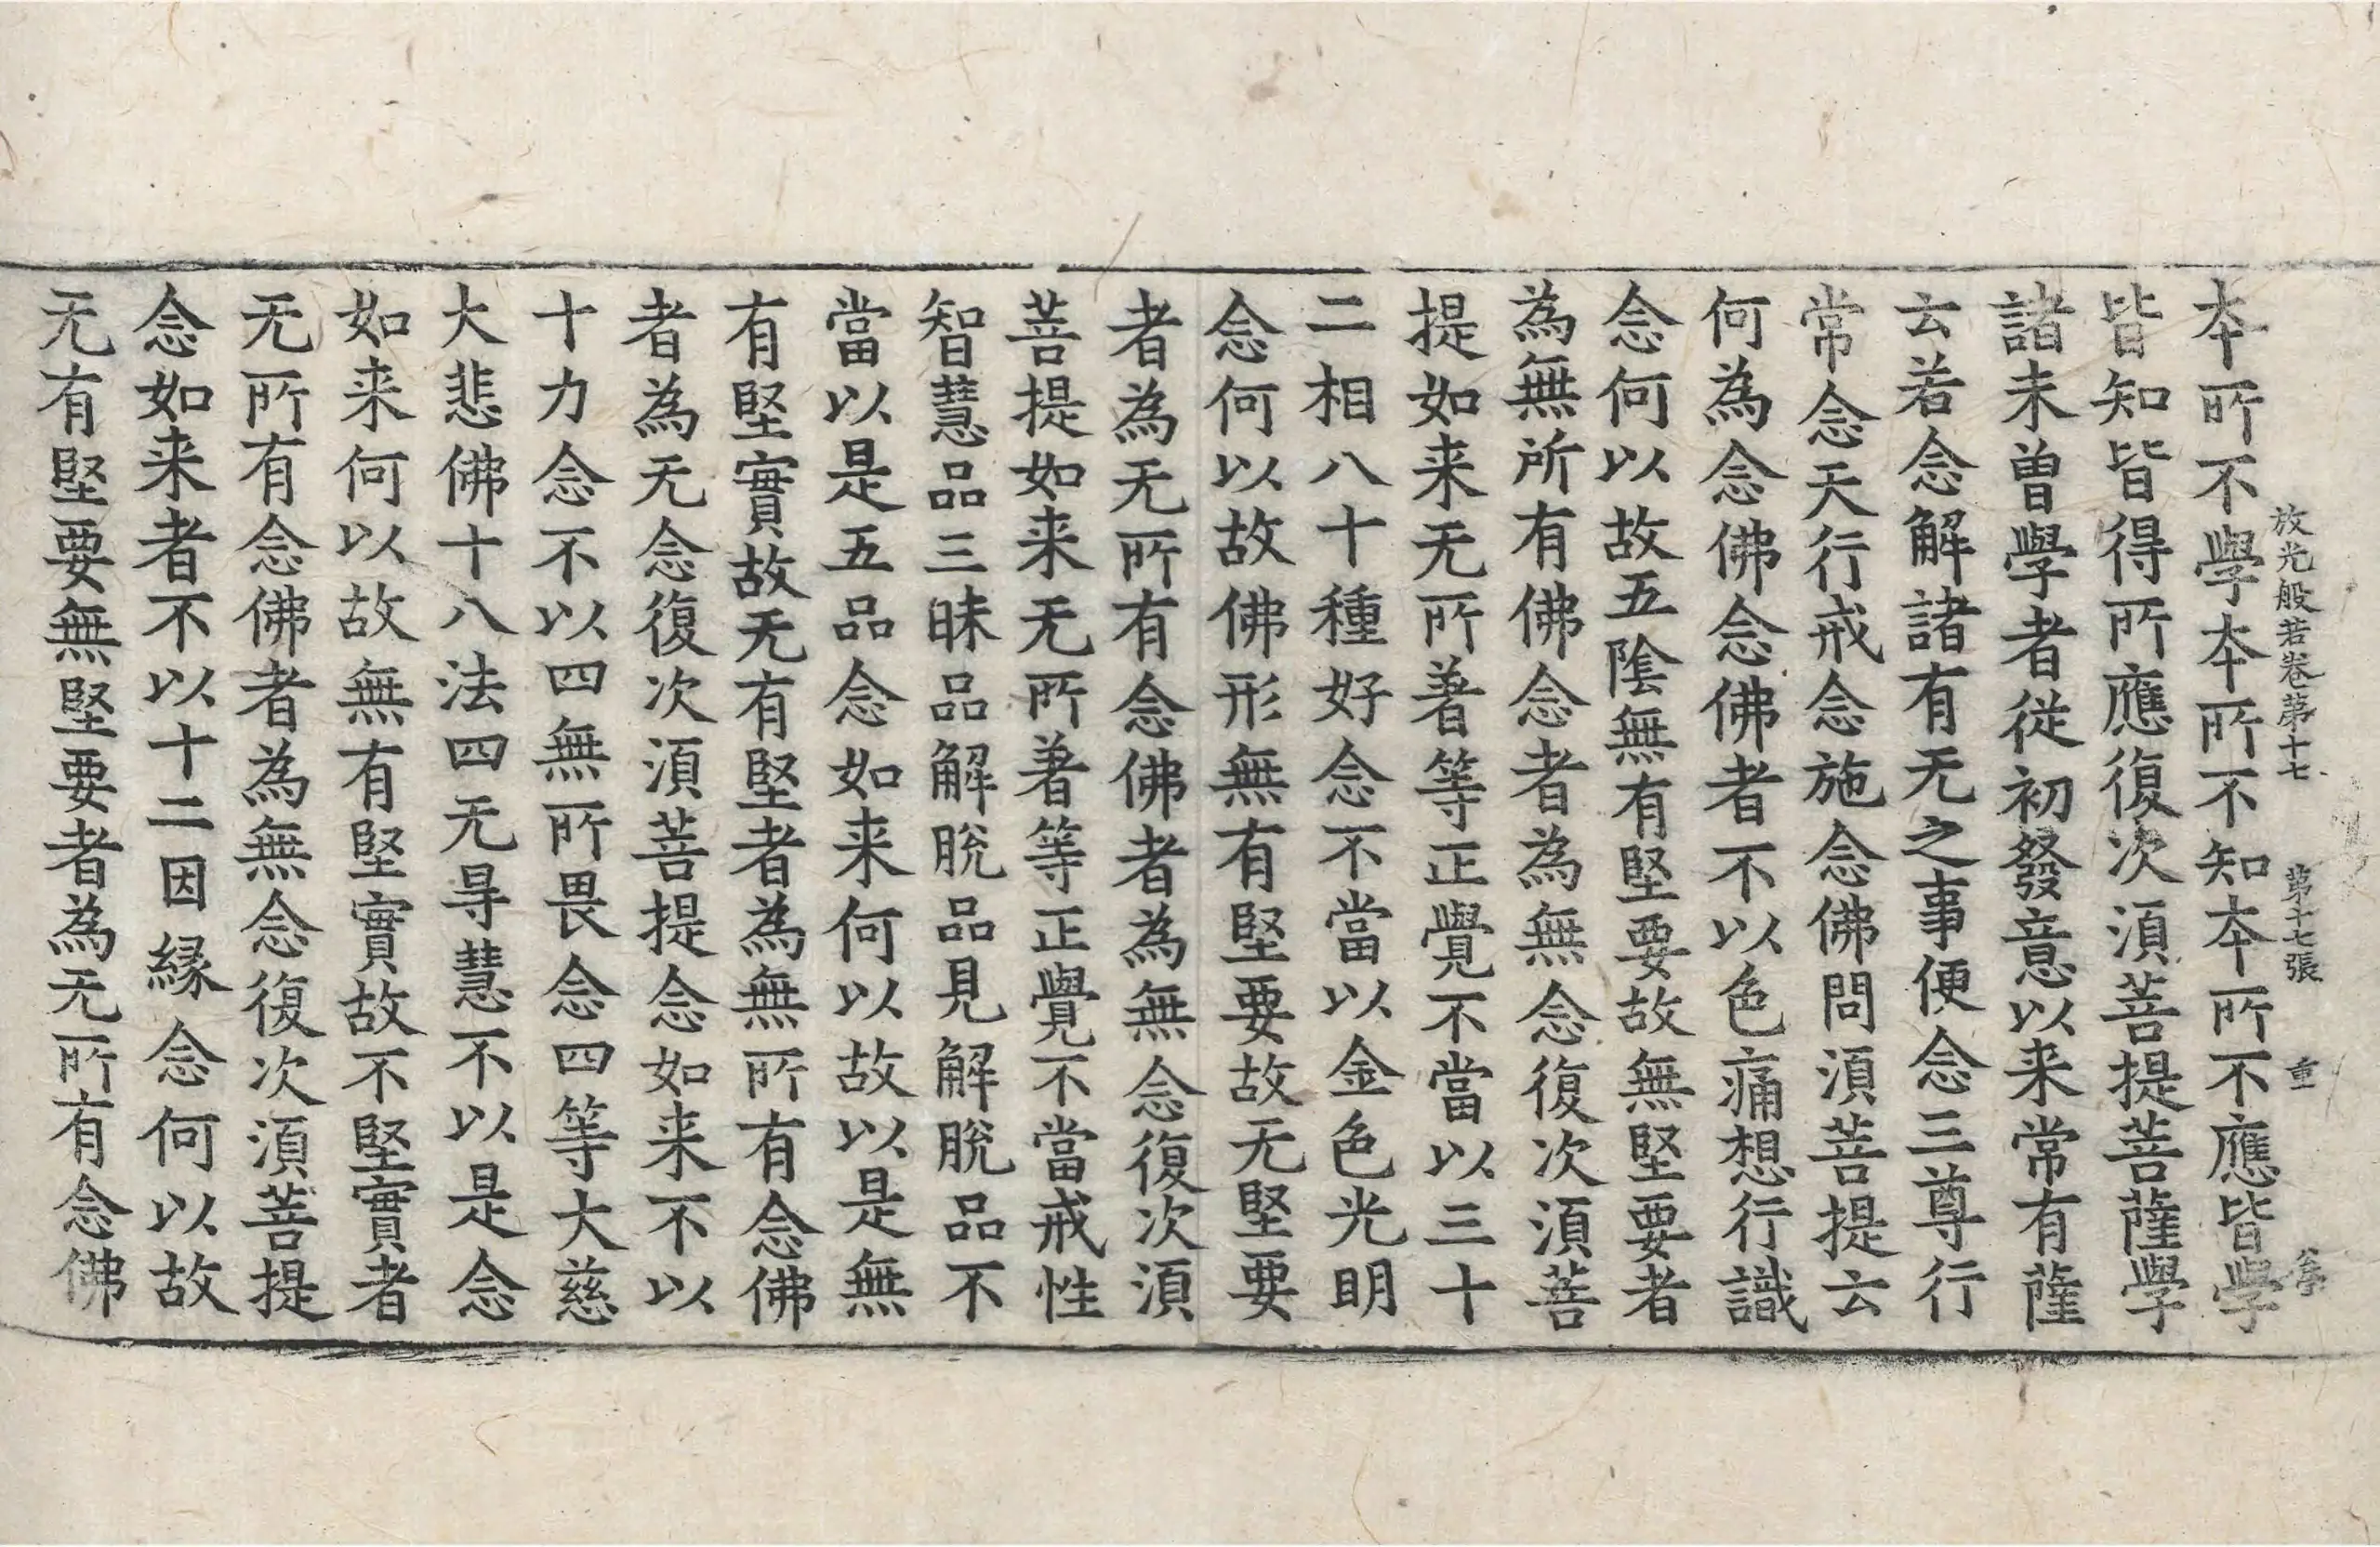 放光般若卷第十七　第十七張　重
本所不學本所不知本所不應皆學
皆知皆得所應復次須菩提菩薩學
諸未曾學者從初發意以来常有薩
云若念解諸有无之事便念三尊行
常念天行戒念施念佛問須菩提云
何為念佛念佛者不以色痛想行識
念何以故五陰無有堅要故無堅要者
為無所有佛念者為無念復次須菩
提如来无所著等正覺不當以三十
二相八十種好念不當以金色光明
念何以故佛形無有堅要故无堅要
者為无所有念佛者為無念復次須
菩提如来无所著等正覺不當戒性
智慧品三昧品解脫品見解脫品不
當以是五品念如来何以故以是無
有堅實故无有堅者為無所有念佛
者為无念復次須菩提念如来不以
十力念不以四無所畏念四等大慈
大悲佛十八法四无㝵慧不以是念
如来何以故無有堅實故不堅實者
无所有念佛者為無念復次須菩提
念如来者不以十二因縁念何以故
无有堅要無堅要者為无所有念佛